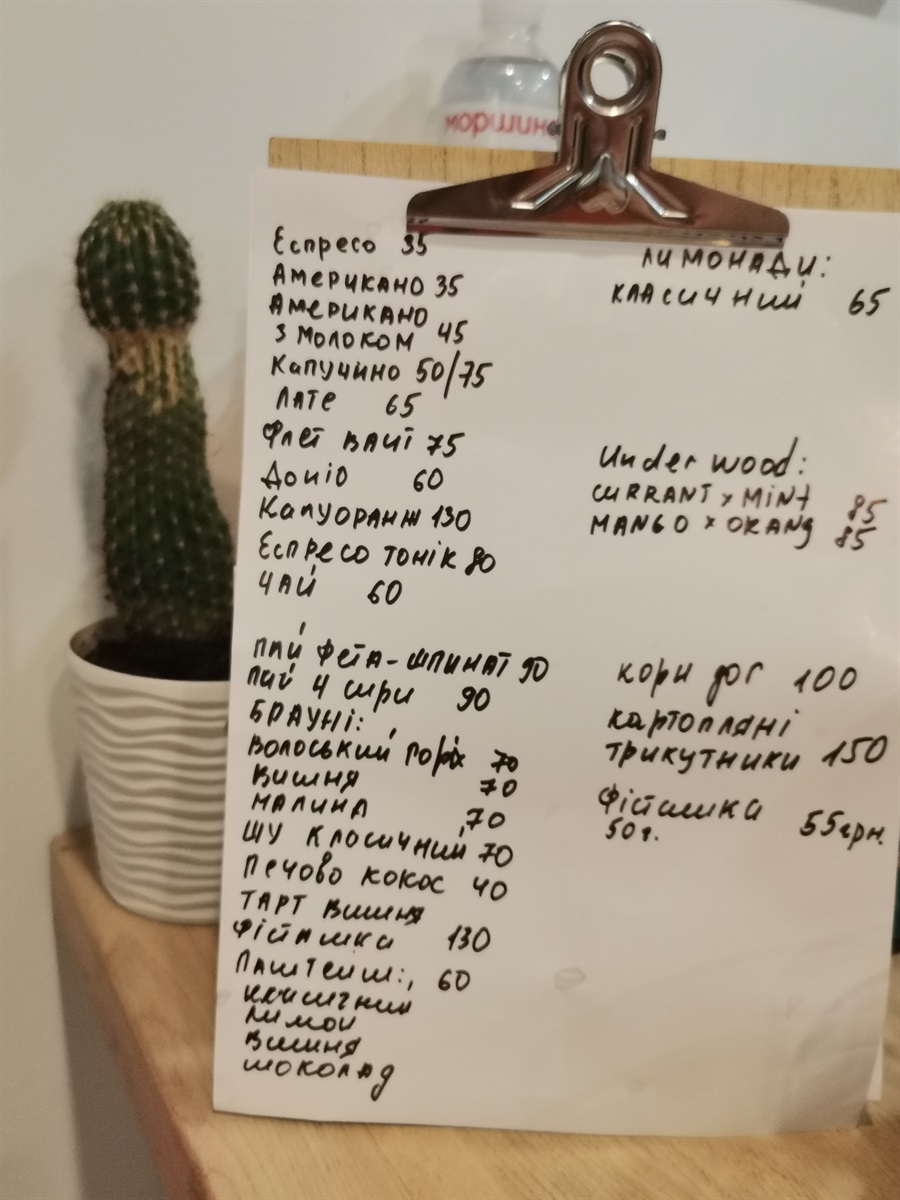 моршин
Еспресо 35
Американо 35
Американо
з молоком 45
Капучино 50/75
Лате 65
Флет вайт 75
Допіо 60
Капуоранж 130
Еспресо тонік 80
Чай 60
Пай фета-шпинат 90
Пай 4 сири 90
Брауні:
Волоський горіх 70
Вишня 70
Малина 70
Шу класичний 70
Печово кокос 40
Тарт вишня
фісташка 130
Паштейш: 60
класичний
лимон
вишня
шоколад
Лимонади:
класичний 65
Under wood:
CURRANT x MINT 85
MANGO x ORANG 85
корн дог 100
картопляні
трикутники 150
Фісташка
50г. 55грн.